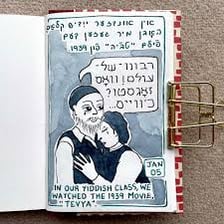 אין אונדזער ייִדיש קלאַס,
האָבן מיר געזען דעם
פֿילם "טבֿיה" פֿון 1939
רבונו־של־
עולם! וואָס
זאָגסטו?
כ'ווייס...
JAN
05
IN OUR YIDDISH CLASS, WE
WATCHED THE 1939 MOVIE,
"TEVYA"